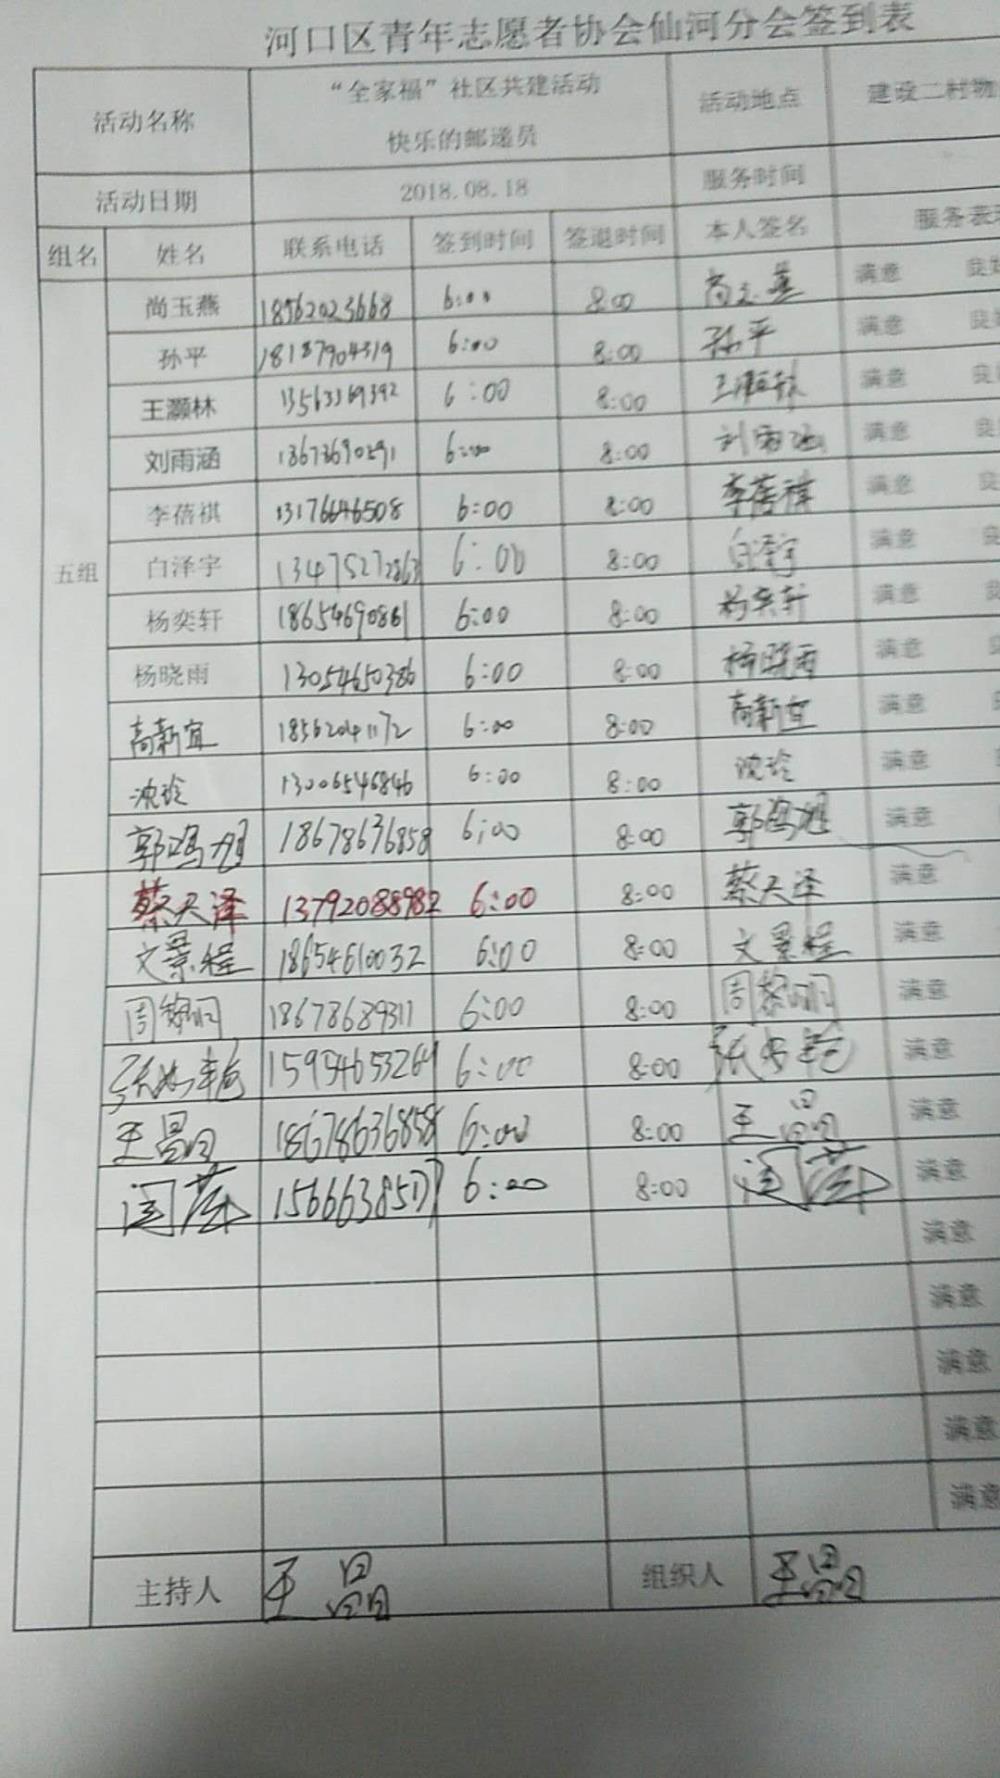 河口区青年志愿者协会仙河分会签到表
活动名称 “全家福”社区共建活动 快乐的邮递员 活动地点 建设二村物
活动日期 2018.08.18 服务时间
组名 姓名 联系电话 签到时间 签退时间 本人签名 服务表
五组
尚玉燕 18562023668 6:00 8:00 尚玉燕 满意 良
孙平 18187904319 6:00 8:00 孙平 满意 良
王灏林 13563369392 6:00 8:00 王灏林 满意 良
刘雨涵 13673690291 6:00 8:00 刘雨涵 满意 良
李蓓祺 13176646508 6:00 8:00 李蓓祺 满意 良
白泽宇 13475272863 6:00 8:00 白泽宇 满意 良
杨奕轩 18654690861 6:00 8:00 杨奕轩 满意 良
杨晓雨 13054650386 6:00 8:00 杨晓雨 满意
高新宜 18562041172 6:00 8:00 高新宜 满意
沈玲 13006546846 6:00 8:00 沈玲 满意
郭鸿旭 18678636858 6:00 8:00 郭鸿旭 满意
蔡天泽 13792088982 6:00 8:00 蔡天泽 满意
文景程 18654610032 6:00 8:00 文景程 满意
周黎明 18678689311 6:00 8:00 周黎明 满意
15954653264 6:00 8:00 满意
王晶 18678636858 6:00 8:00 王晶 满意
15666385177 6:00 8:00 满意
满意
满意
满意
满意
满意
主持人 王晶 组织人 王晶